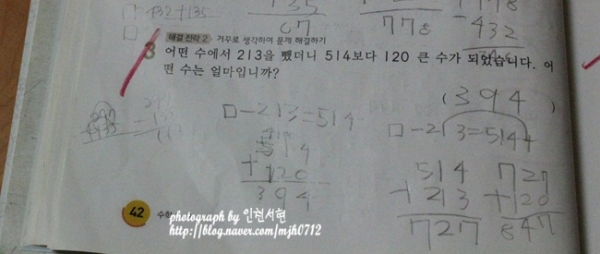 432+135
135
67
778
778
- 432
해결 전략 2 거꾸로 생각하여 문제 해결하기
3 어떤 수에서 213을 뺐더니 514보다 120 큰 수가 되었습니다. 어
떤 수는 얼마입니까?
(394)
□-213=514
+120
394
□-213=514
514
+213
727
727
+120
847
42 수학
photograph by 인현서현
http://blog.naver.com/mjh0712